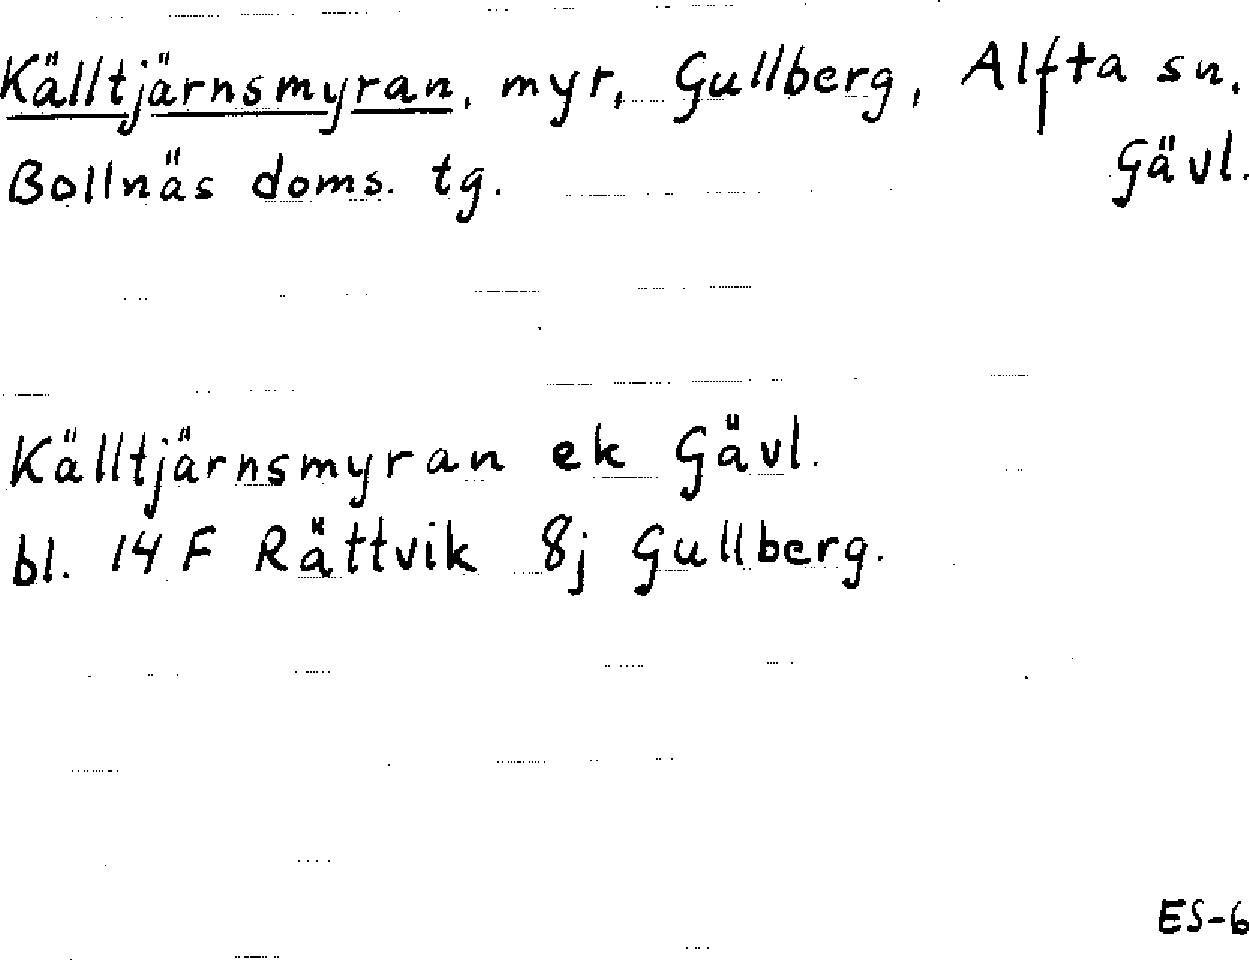 Källtjärnsmyran, myr, Gullberg, Alfta sn,
Bollnäs doms. tg. Gävl.
Källtjärnsmyran ek Gävl.
bl. 14 F Rättvik 8j Gullberg.
ES-6